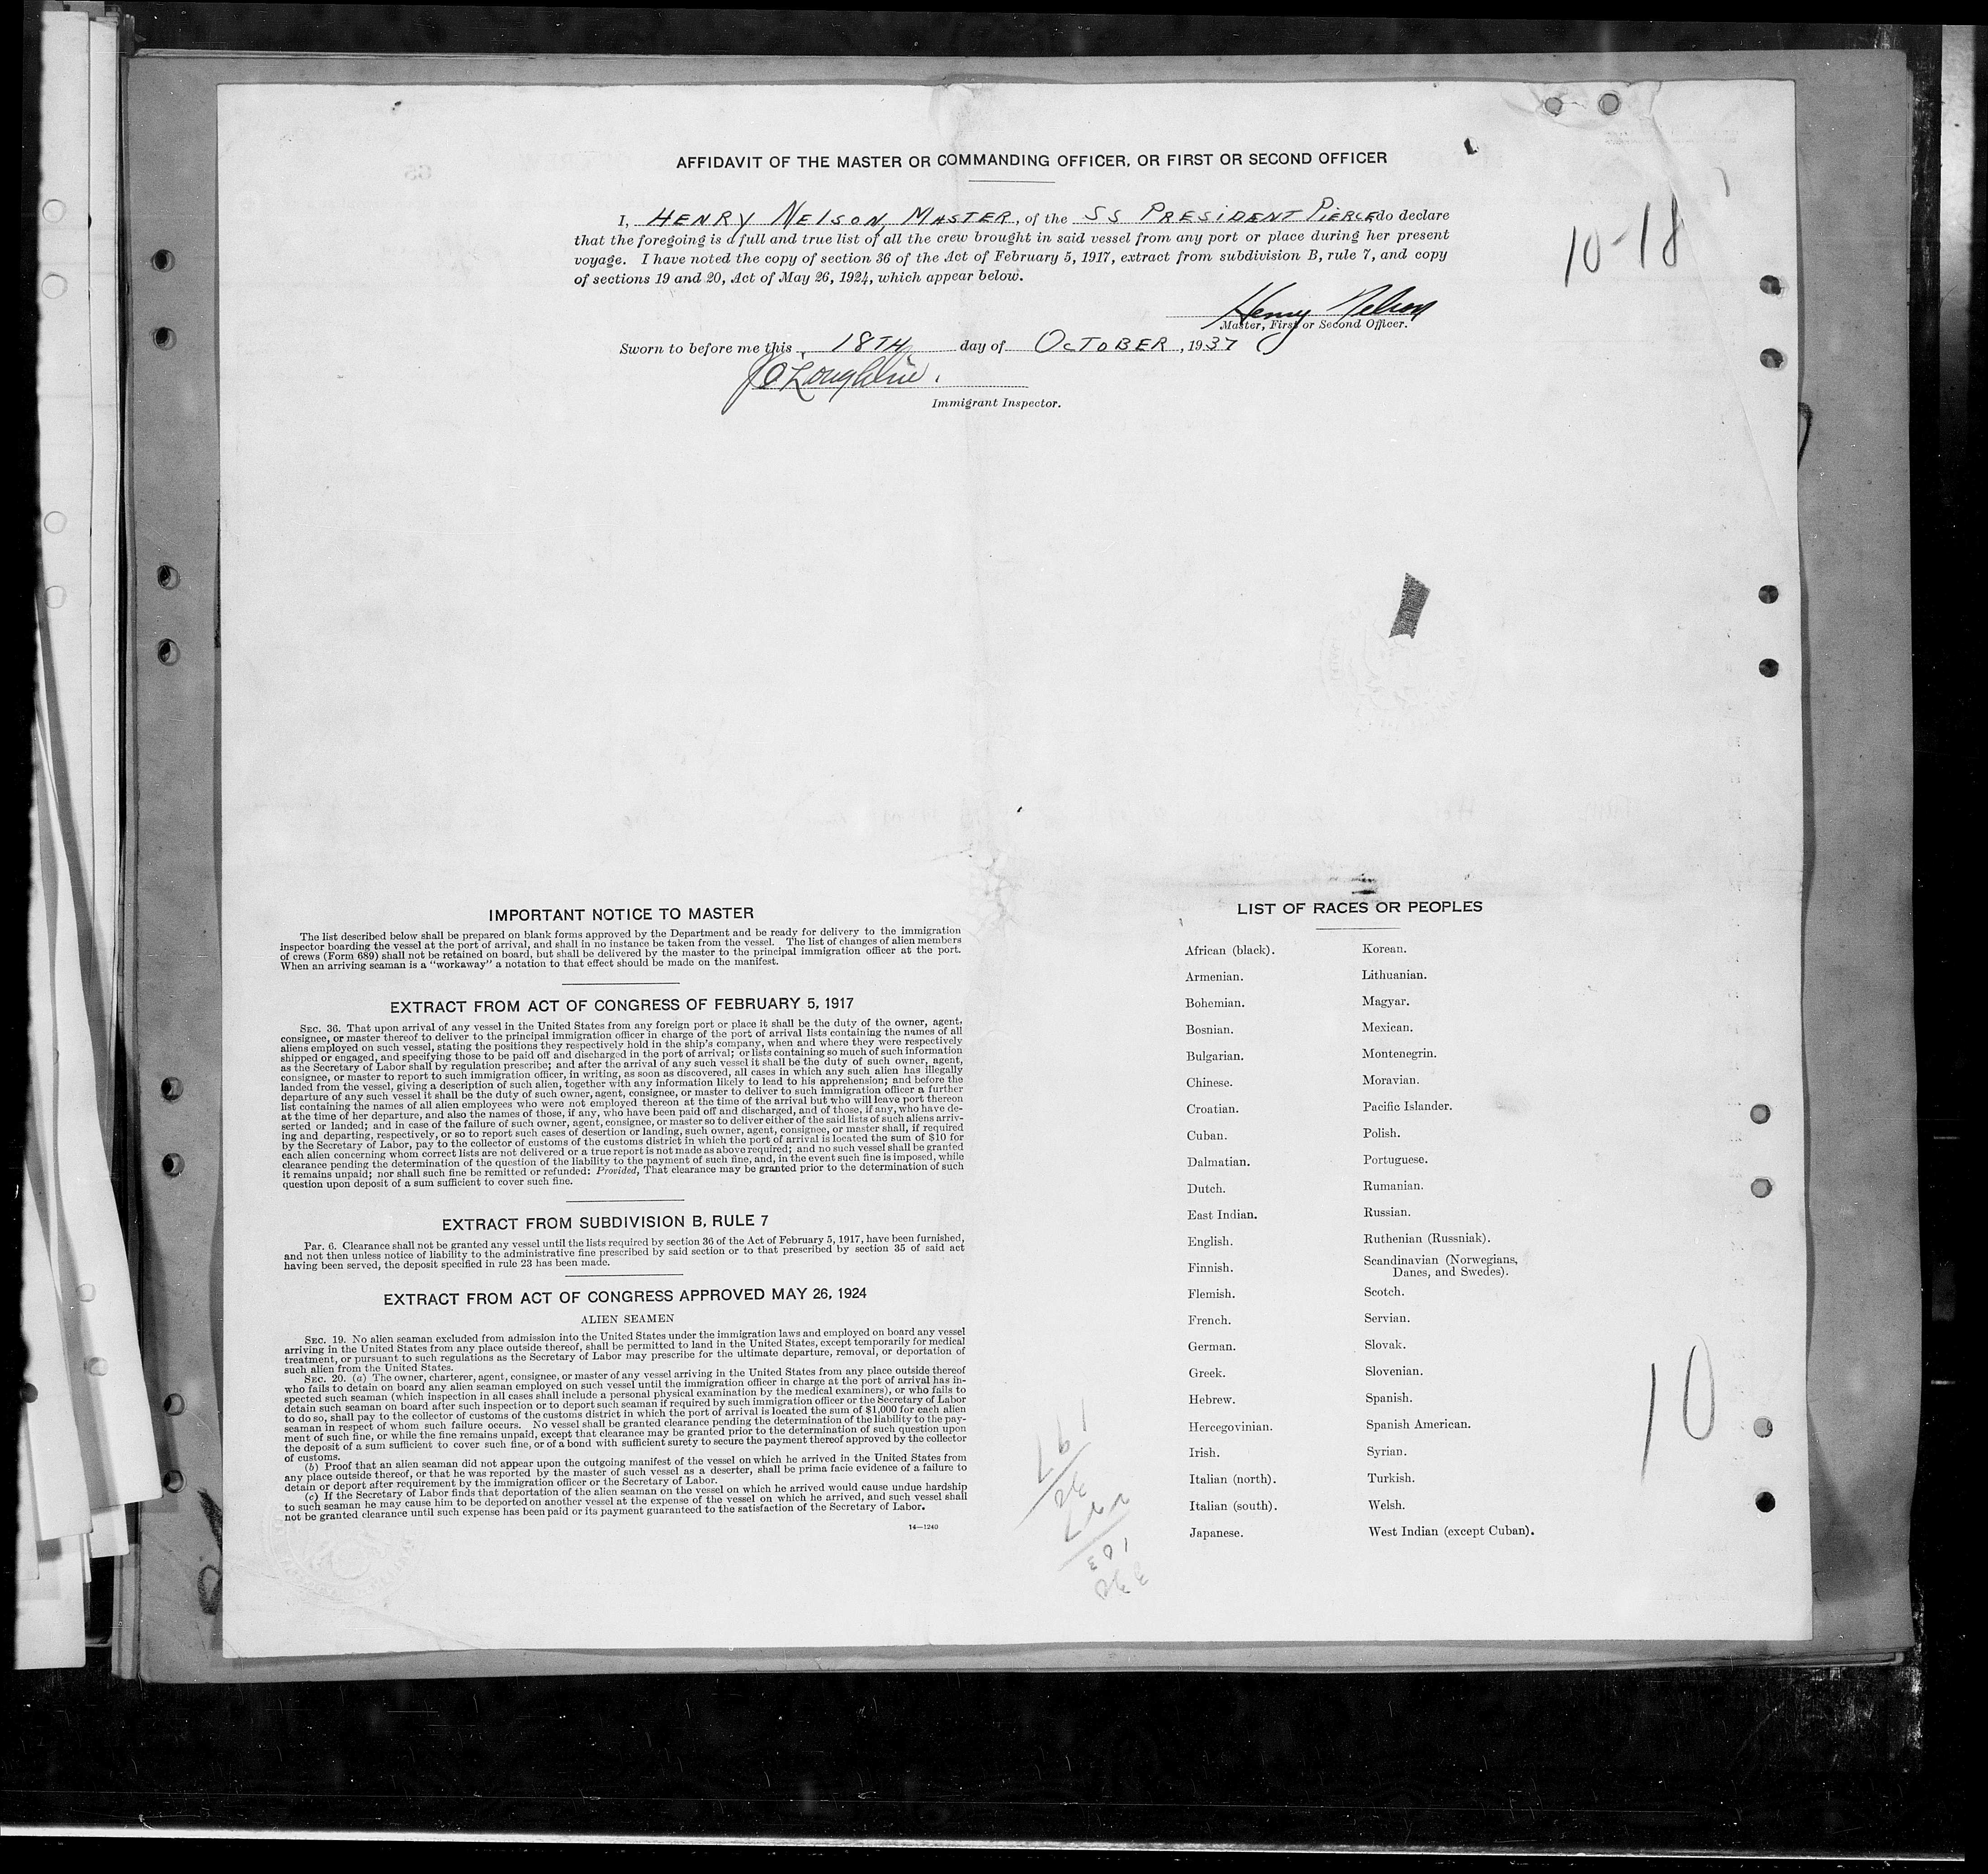 AFFIDAVIT OF THE MASTER OR COMMANDING OFFICER, OR FIRST OR SECOND OFFICER
I, HENRY NELSON, MASTER, of the SS PRESIDENT PIERCE do declare
that the foregoing is a full and true list of all the crew brought in said vessel from any port or place during her present
voyage. I have noted the copy of section 36 of the Act of February 5, 1917, extract from subdivision B, rule 7, and copy
of sections 19 and 20, Act of May 26, 1924, which appear below.
10-18
Henry Nelson
Master, First or Second Officer.
Sworn to before me this 18TH day of OCTOBER, 1937
Immigrant Inspector.
IMPORTANT NOTICE TO MASTER
The list described below shall be prepared on blank forms approved by the Department and be ready for delivery to the immigration
inspector boarding the vessel at the port of arrival, and shall in no instance be taken from the vessel. The list of changes of alien members
of crews (Form 689) shall not be retained on board, but shall be delivered by the master to the principal immigration officer at the port.
When an arriving seaman is a "workaway" a notation to that effect should be made on the manifest.
EXTRACT FROM ACT OF CONGRESS OF FEBRUARY 5, 1917
SEC. 36. That upon arrival of any vessel in the United States from any foreign port or place it shall be the duty of the owner, agent,
consignee, or master thereof to deliver to the principal immigration officer in charge of the port of arrival lists containing the names of all
aliens employed on such vessel, stating the positions they respectively hold in the ship's company, when and where they were respectively
shipped or engaged, and specifying those to be paid off and discharged in the port of arrival; or lists containing so much of such information
as the Secretary of Labor shall by regulation prescribe; and after the arrival of any such vessel it shall be the duty of such owner, agent,
consignee, or master to report to such immigration officer, in writing, as soon as discovered, all cases in which any such alien has illegally
landed from the vessel, giving a description of such alien, together with any information likely to lead to his apprehension; and before the
departure of any such vessel it shall be the duty of such owner, agent, consignee, or master to deliver to such immigration officer a further
list containing the names of all alien employees who were not employed thereon at the time of the arrival but who will leave port thereon
at the time of her departure, and also the names of those, if any, who have been paid off and discharged, and of those, if any, who have de-
serted or landed; and in case of the failure of such owner, agent, consignee, or master so to deliver either of the said lists of such aliens arriv-
ing and departing, respectively, or so to report such cases of desertion or landing, such owner, agent, consignee, or master shall, if required
by the Secretary of Labor, pay to the collector of customs of the customs district in which the port of arrival is located the sum of $10 for
each alien concerning whom correct lists are not delivered or a true report is not made as above required; and no such vessel shall be granted
clearance pending the determination of the question of the liability to the payment of such fine, and, in the event such fine is imposed, while
it remains unpaid; nor shall such fine be remitted or refunded: Provided, That clearance may be granted prior to the determination of such
question upon deposit of a sum sufficient to cover such fine.
EXTRACT FROM SUBDIVISION B, RULE 7
PAR. 6. Clearance shall not be granted any vessel until the lists required by section 36 of the Act of February 5, 1917, have been furnished,
and not then unless notice of liability to the administrative fine prescribed by said section or to that prescribed by section 35 of said act
having been served, the deposit specified in rule 23 has been made.
EXTRACT FROM ACT OF CONGRESS APPROVED MAY 26, 1924
ALIEN SEAMEN
SEC. 19. No alien seaman excluded from admission into the United States under the immigration laws and employed on board any vessel
arriving in the United States from any place outside thereof, shall be permitted to land in the United States, except temporarily for medical
treatment, or pursuant to such regulations as the Secretary of Labor may prescribe for the ultimate departure, removal, or deportation of
such alien from the United States.
SEC. 20. (a) The owner, charterer, agent, consignee, or master of any vessel arriving in the United States from any place outside thereof
who fails to detain on board any alien seaman employed on such vessel until the immigration officer in charge at the port of arrival has in-
spected such seaman (which inspection in all cases shall include a personal physical examination by the medical examiners), or who fails to
detain such seaman on board after such inspection or to deport such seaman if required by such immigration officer or the Secretary of Labor
to do so, shall pay to the collector of customs of the customs district in which the port of arrival is located the sum of $1,000 for each alien
seaman in respect of whom such failure occurs. No vessel shall be granted clearance pending the determination of the liability to the pay-
ment of such fine, or while the fine remains unpaid, except that clearance may be granted prior to the determination of such question upon
the deposit of a sum sufficient to cover such fine, or of a bond with sufficient surety to secure the payment thereof approved by the collector
of customs.
(b) Proof that an alien seaman did not appear upon the outgoing manifest of the vessel on which he arrived in the United States from
any place outside thereof, or that he was reported by the master of such vessel as a deserter, shall be prima facie evidence of a failure to
detain or deport after requirement by the immigration officer or the Secretary of Labor.
(c) If the Secretary of Labor finds that deportation of the alien seaman on the vessel on which he arrived would cause undue hardship
to such seaman he may cause him to be deported on another vessel at the expense of the vessel on which he arrived, and such vessel shall
not be granted clearance until such expense has been paid or its payment guaranteed to the satisfaction of the Secretary of Labor.
14—1240
LIST OF RACES OR PEOPLES
African (black).
Armenian.
Bohemian.
Bosnian.
Bulgarian.
Chinese.
Croatian.
Cuban.
Dalmatian.
Dutch.
East Indian.
English.
Finnish.
Flemish.
French.
German.
Greek.
Hebrew.
Hercegovinian.
Irish.
Italian (north).
Italian (south).
Japanese.
Korean.
Lithuanian.
Magyar.
Mexican.
Montenegrin.
Moravian.
Pacific Islander.
Polish.
Portuguese.
Rumanian.
Russian.
Ruthenian (Russniak).
Scandinavian (Norwegians,
Danes, and Swedes).
Scotch.
Servian.
Slovak.
Slovenian.
Spanish.
Spanish American.
Syrian.
Turkish.
Welsh.
West Indian (except Cuban).
10